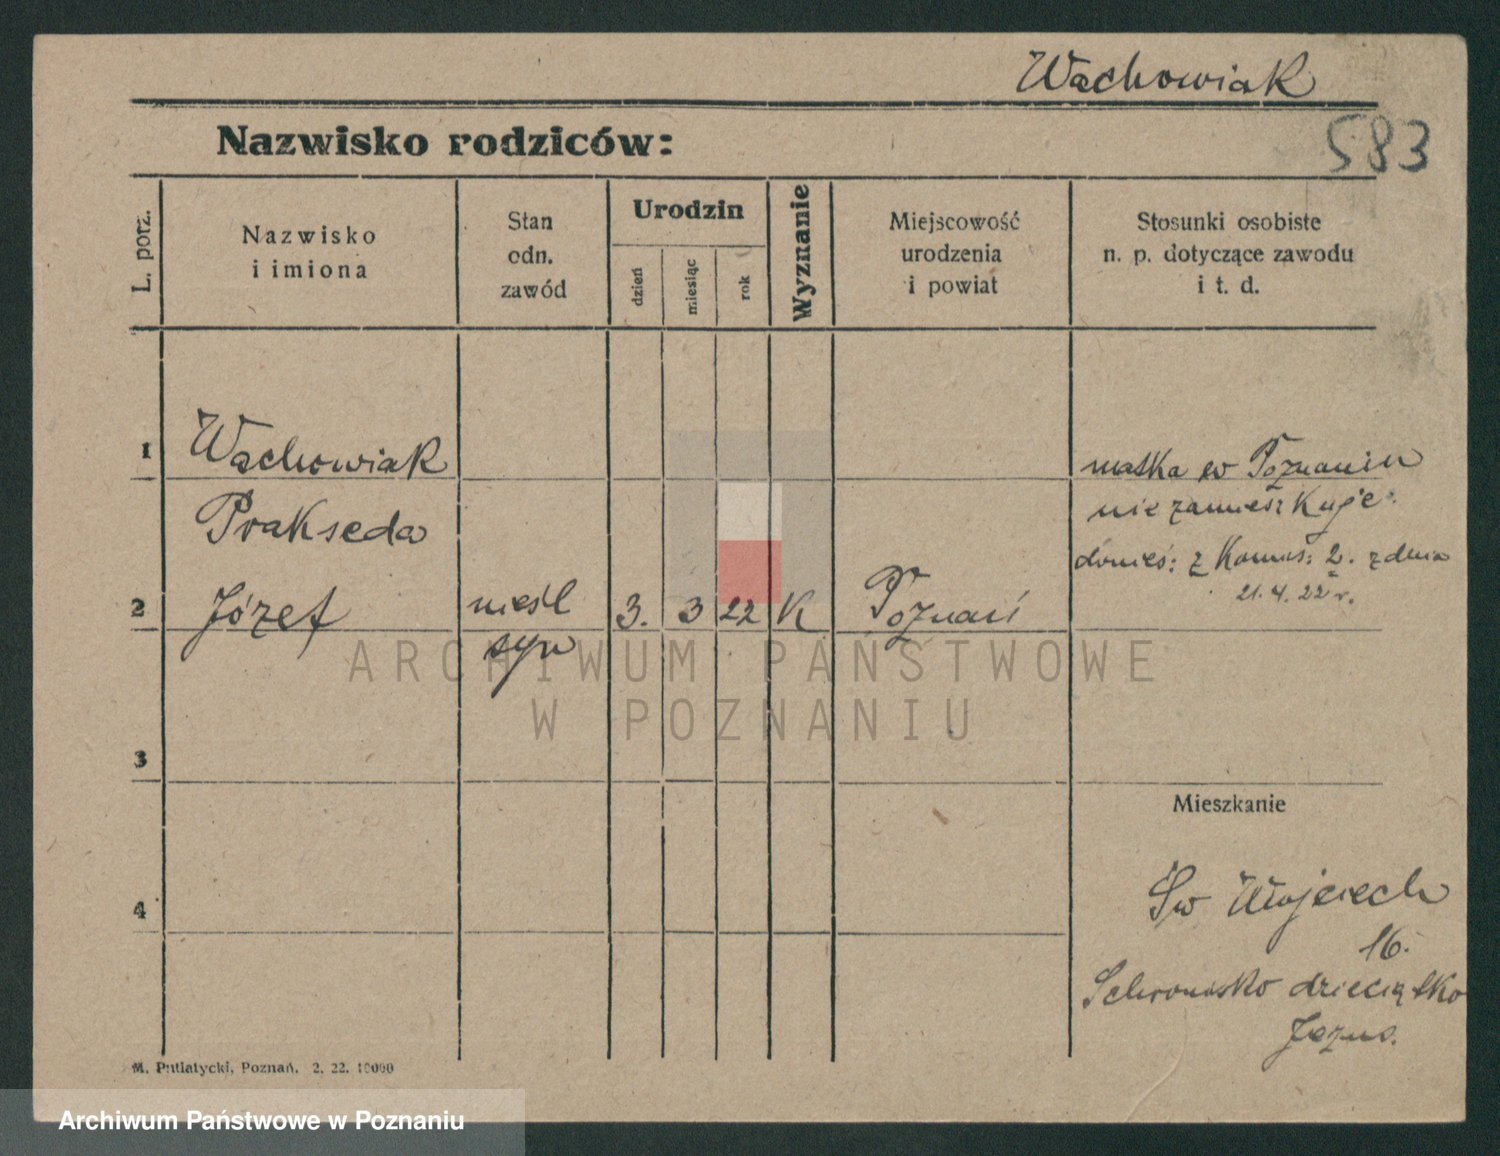 Wachowiak
Nazwisko rodziców:
583
L. porz.
Nazwisko
i imiona
Stan
odn.
zawód
Urodzin
dzień
miesiąc
rok
Wyznanie
Miejscowość
urodzenia
i powiat
Stosunki osobiste
n. p. dotyczące zawodu
i t. d.
1
Wachowiak
Prakseda
matka w Poznaniu
nie zamieszkuje.
donieś: z Komis: 2. z dnia
21.4. 22 r.
2
Józef
nieśl
syn
3.
3
22
K
Poznań
ARCHIWUM PAŃSTWOWE
W POZNANIU
3
4
Mieszkanie
Św Wojciech
16.
Schronisko dzieciątko
Jezus.
M. Putiatycki, Poznań. 2. 22. 10000
Archiwum Państwowe w Poznaniu